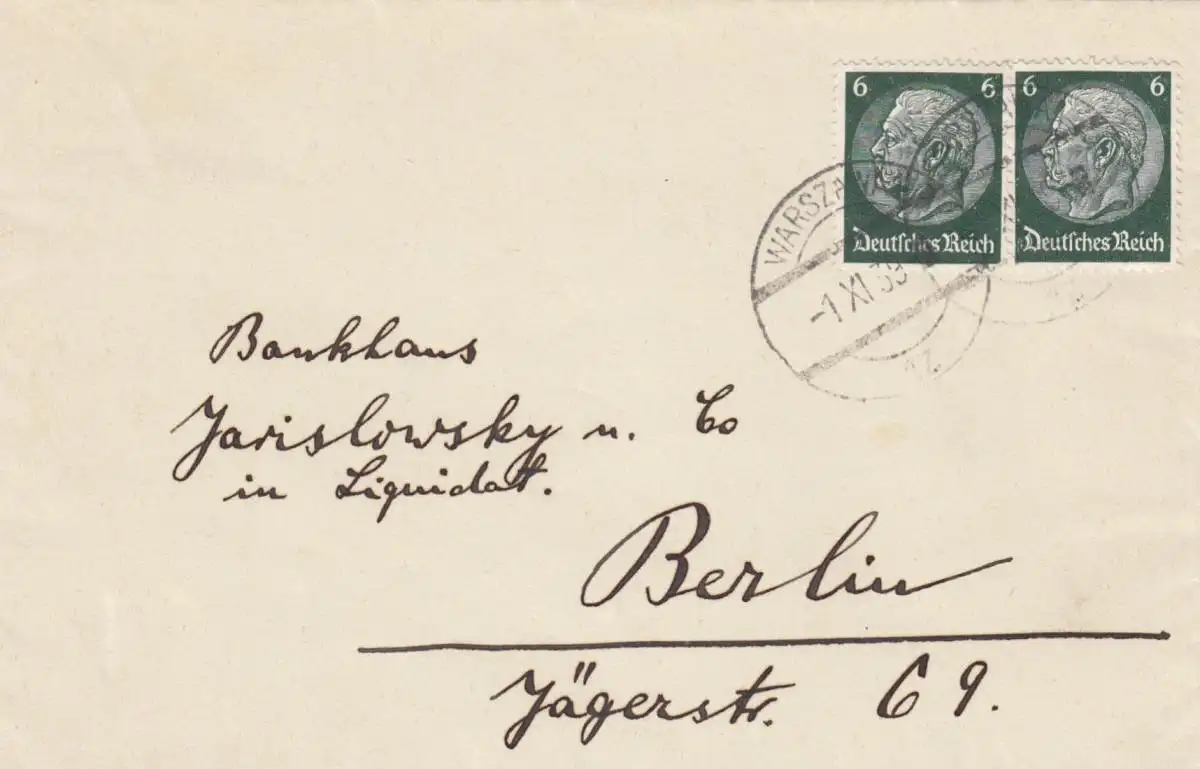 6 6 6 6
Deutsches Reich Deutsches Reich
WARSZA
-1 XI 39
Bankhaus
Jarislowsky u. Co
in Liquidat.
Berlin
Jägerstr. 69.